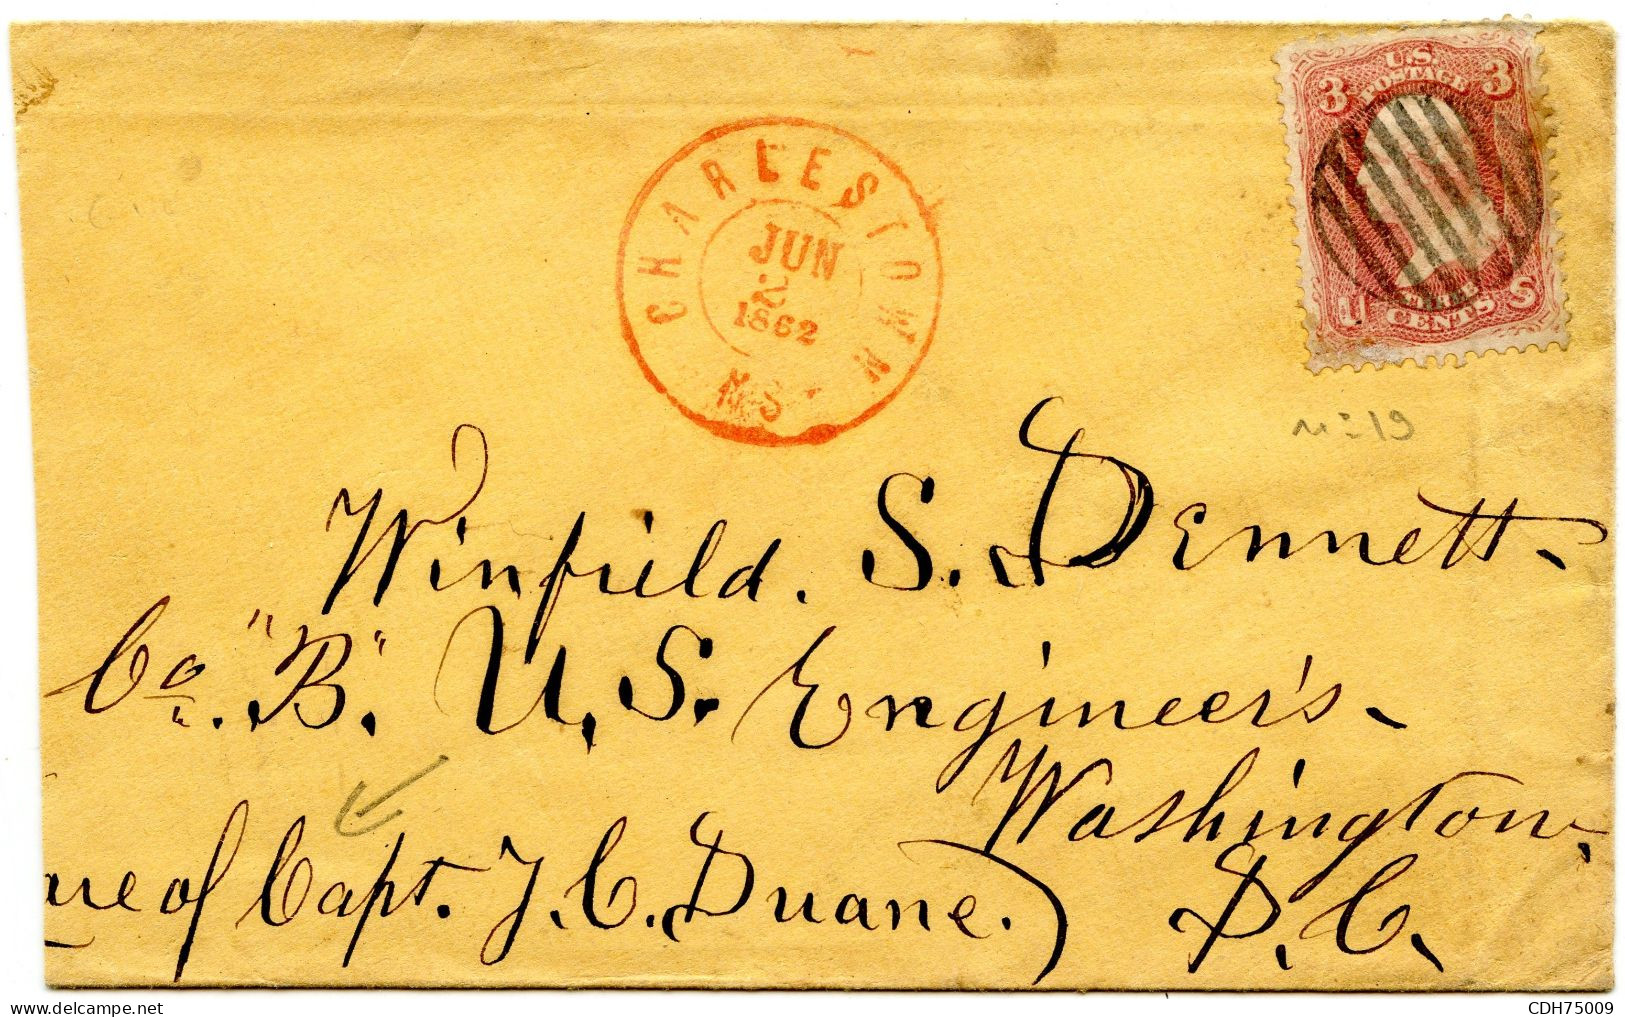 CHARLESTOWN
JUN
1862
MS
U.S.
POSTAGE
3 3
U S
THREE
CENTS
N=19
Winfield. S. Dennett.
Co. "B". U.S. Engineer's.
Washington.
D.C.
are of Capt. J.C. Duane.)
delcampe.net
CDH75009